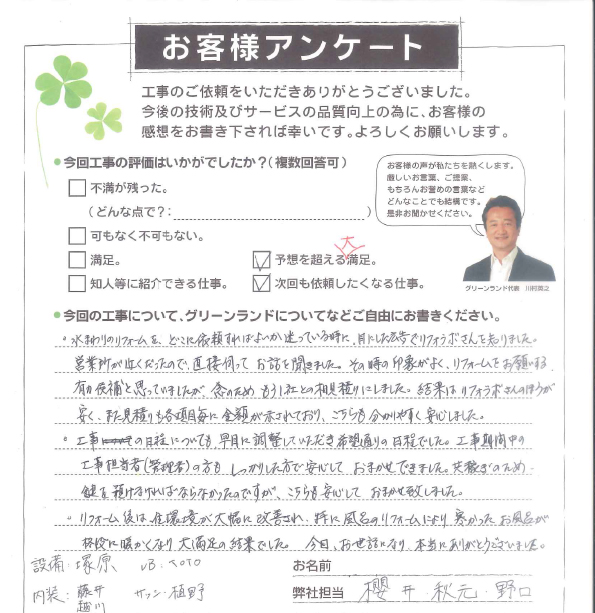 お客様アンケート
工事のご依頼をいただきありがとうございました。
今後の技術及びサービスの品質向上の為に、お客様の
感想をお書き下されば幸いです。よろしくお願いします。
●今回工事の評価はいかがでしたか?(複数回答可)
不満が残った。
(どんな点で?: )
可もなく不可もない。
満足。
大
予想を超える満足。
知人等に紹介できる仕事。
次回も依頼したくなる仕事。
お客様の声が私たちを熱くします。
厳しいお言葉、ご提案、
もちろんお誉めの言葉など
どんなことでも結構です。
是非お聞かせください。
グリーンランド代表 川村英之
●今回の工事について、グリーンランドについてなどご自由にお書きください。
○水まわりのリフォームを、どこに依頼すればよいか迷っている時に、目にした広告でリフォラボさんを知りました。
営業所が近くだったので、直接伺って お話を聞きました。その時の印象がよく、リフォームをお願いする
有力候補と思っていましたが、念のため もう1社との相見積りにしました。結果はリフォラボさんのほうが
安く、また見積りも各項目毎に金額が示されており、こちらも分かりやすく安心しました。
○工事の日程についても、早目に調整していただき希望通りの日程でした。工事期間中の
工事担当者(管理者)の方も しっかりした方で安心して おまかせできました。共稼ぎのため、
鍵を預けなければならなかったのですが、こちらも安心して おまかせ致しました。
○リフォーム後は、住環境が大幅に改善され、特に風呂のリフォームにより 寒かったお風呂が
格段に暖かくなり 大満足の結果でした。 今回、お世話になり、本当にありがとうございました。
設備・塚原 UB・TOTO
お名前
内装・藤井 サッシ・植野
弊社担当 櫻井・秋元・野口
越川